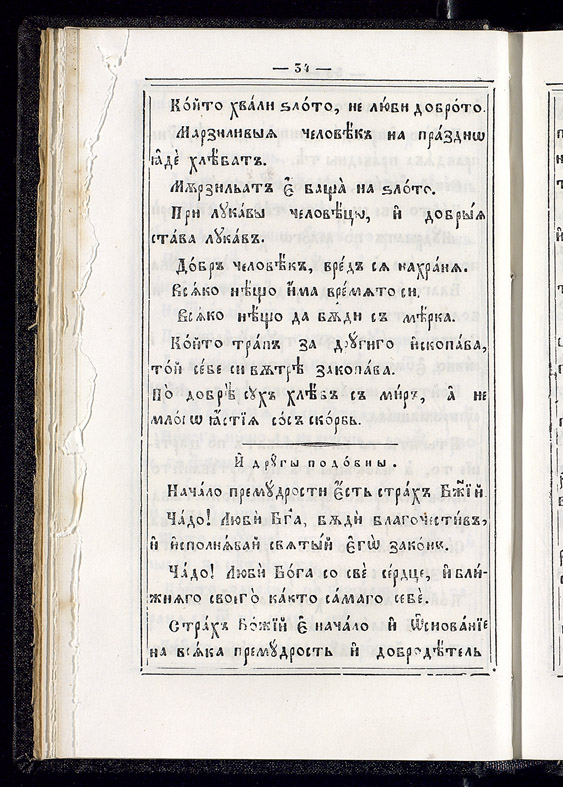 — 34 —
Ко́йто хва́ли ѕло́то, не лю́би добро́то.
Марзи́ливыя человѣ́къ на пра́здно
ꙗ҆дѐ хлѣ́батъ.
Мѫ́рзильатъ є҆ баща̀ на ѕло́то.
При лꙋка́вы человѣ́цы, и҆ добры́я
ста́ва лꙋка́въ.
До́бръ человѣ́къ, вре́дъ ся нахра́ня.
Вся́ко нѣ́що и҆́ма вре́мято си.
Вся́ко нѣ́що да бѫ́ди съ мѣ́рка.
Ко́йто тра́пъ за дрꙋ́гиго и҆скопа́ва,
то́й се́бе си вѫ́трѣ закопа́ва.
По̀ добрѣ̀ сꙋ́хъ хлѣ́бъ съ ми́ръ, а҆ не
мло́гѡ ꙗ҆́стїя со́съ ско́рбь.
И҆ дрꙋ́гы подо́бны.
Нача́ло премꙋ́дрости є҆́сть стра́хъ Бж҃їй.
Ча́до! Любѝ Бг҃а, бѫ́ди благочести́въ,
и҆ и҆сполня́вай святы́й є҆гѡ̀ зако́нъ.
Ча́до! Любѝ Бо́га со свѐ се́рдце, и҆ бли́-
жняго своего̀ ка́кто са́маго себѐ.
Стра́хъ Бо́жїй є҆ нача́ло и҆ ѡ҆снова́нїе
на вся́ка премꙋ́дрость и҆ добродѣ́тель